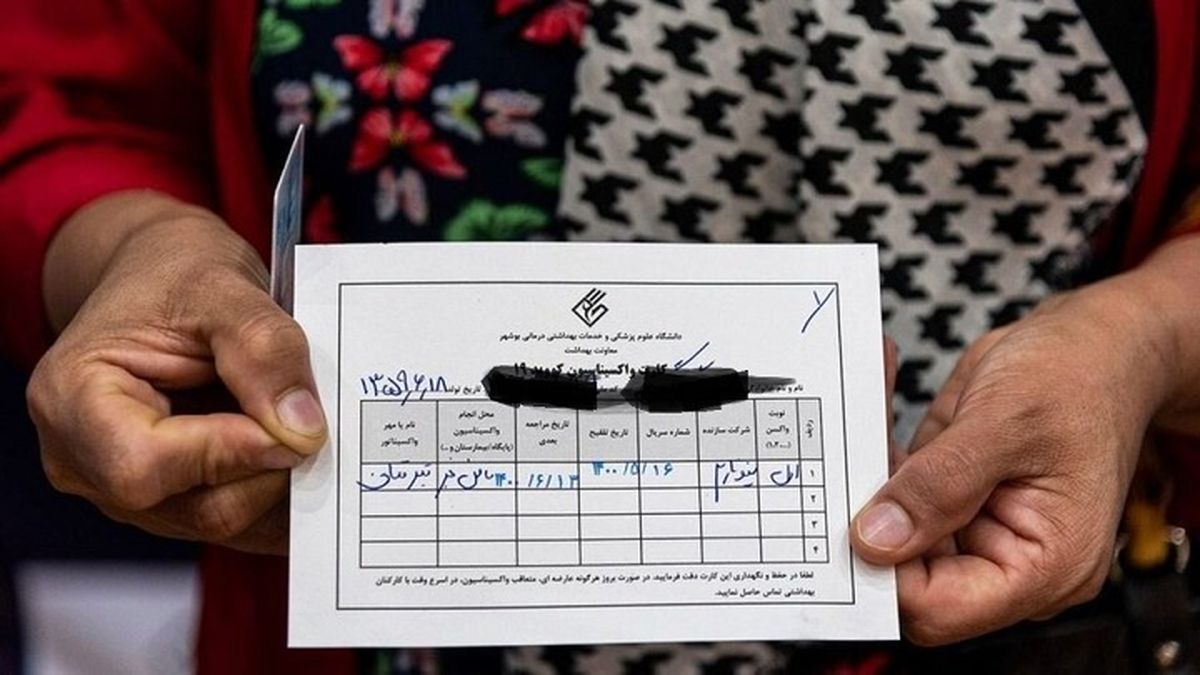 ۷
دانشگاه علوم پزشکی و خدمات بهداشتی درمانی بوشهر
معاونت بهداشت
کارت واکسیناسیون کووید ۱۹
نام و نام خانوادگی تاریخ تولد ۱۳۵۹/۶/۱۸
ردیف نوبت واکسن (۱،۲،...) شرکت سازنده شماره سریال تاریخ تلقیح تاریخ مراجعه بعدی محل انجام واکسیناسیون (پایگاه/بیمارستان و ...) نام یا مهر واکسیناتور
۱ اول ۱۴۰۰/۵/۱۶ ۱۴۰۰/۶/۱۳
۲
۳
۴
لطفا در حفظ و نگهداری این کارت دقت فرمایید، در صورت بروز هرگونه عارضه ای، متعاقب واکسیناسیون، در اسرع وقت با کارکنان
بهداشتی تماس حاصل نمایید.